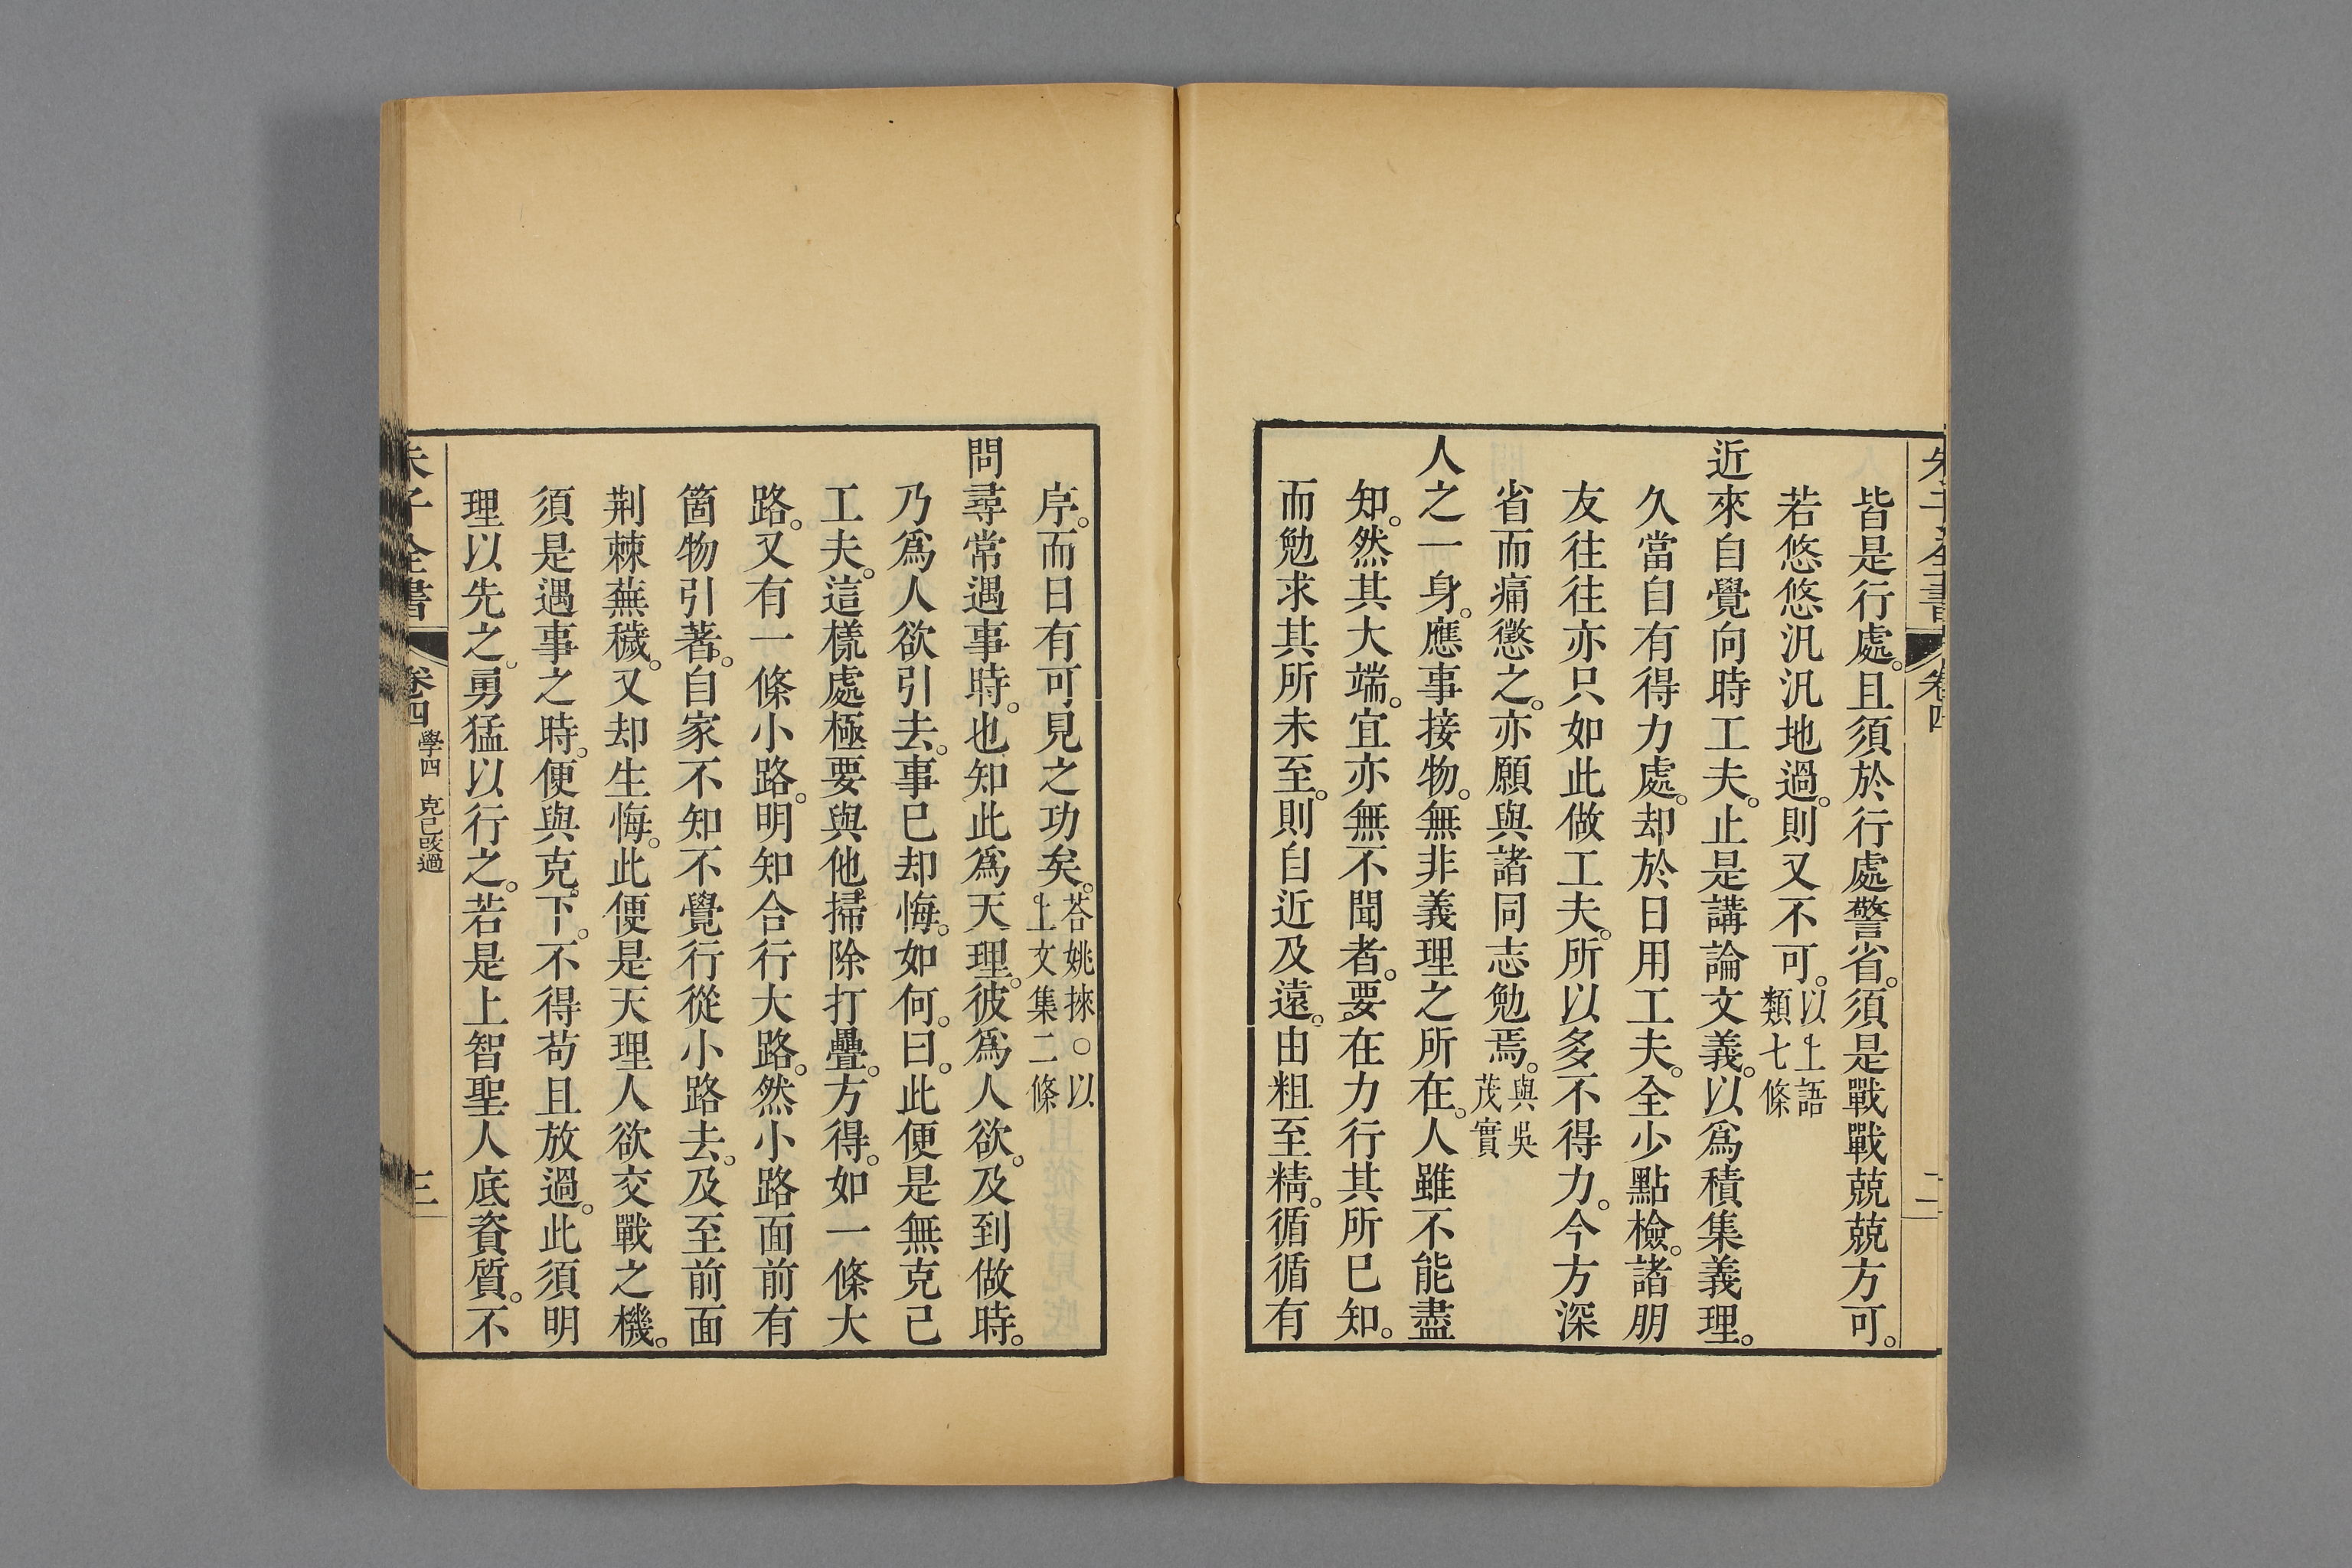 朱子全書 卷四 二
皆是行處。且須於行處警省。須是戰戰兢兢方可。
若悠悠汎汎地過。則又不可。以上語類七條
近來自覺向時工夫。止是講論文義。以爲積集義理。
久當自有得力處。却於日用工夫。全少點檢。諸朋
友往往亦只如此做工夫。所以多不得力。今方深
省而痛懲之。亦願與諸同志勉焉。與吳茂實
人之一身。應事接物。無非義理之所在。人雖不能盡
知。然其大端。宜亦無不聞者。要在力行其所已知。
而勉求其所未至。則自近及遠。由粗至精。循循有
序。而日有可見之功矣。荅姚掞○以上文集二條
問尋常遇事時。也知此爲天理。彼爲人欲。及到做時。
乃爲人欲引去。事已却悔。如何。曰。此便是無克己
工夫。這樣處極要與他掃除打疊。方得。如一條大
路。又有一條小路。明知合行大路。然小路面前有
箇物引著。自家不知不覺行從小路去。及至前面
荆棘蕪穢。又却生悔。此便是天理人欲交戰之機。
須是遇事之時。便與克下。不得苟且放過。此須明
理以先之。勇猛以行之。若是上智聖人底資質。不
朱子全書 卷四 學四 克己改過 三